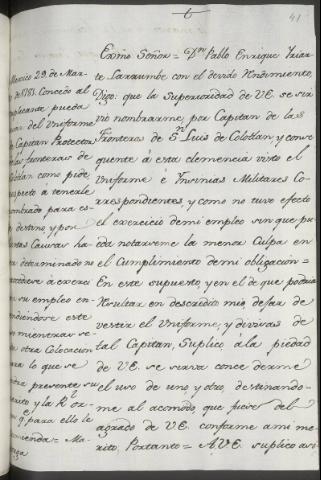 41
Mexico 29 de Mar-
zo de 1781. Concedo al
suplicante pueda
usar del Uniforme
de Capitan Protector
de las fronteras de
Colotlan como pide
respecto à tenerle
nombrado para es-
e destino, y por
justas Causas ha-
ver determinado no
pase à exerci
su empleo en-
tendiendose este
mientras se
da otra Colocacion
para lo que se
tendra presente su
merito y la Rl or-
para ello le
Exmo Señor = Dn Pablo Enrique Yriar-
te Larrumbe con el devido Rendimiento,
Digo: que la Superioridad de VE. se sir
vió nombrarme por Capitan de las
Fronteras de Sn Luis de Colotlan, y conse
quente à esta clemencia visto el
Uniforme è Insinias Militares Co-
rrespondientes, y como no tuvo efecto
el exercicio de mi empleo sin que pu
eda notarseme la menor Culpa en
el Cumplimiento de mi obligacion =
En este supuesto, y en el de que podria
Resultar en descredito mio, dexar de
vestir el Uniforme, y divisas de
tal Capitan, Suplico à la piedad
de VE. se sirva conce derme
el uso de uno, y otro, destinando-
me al acomodo, que fuere del
agrado de VE conforme à mi me
rito, Portanto = A.V.E. suplico asi